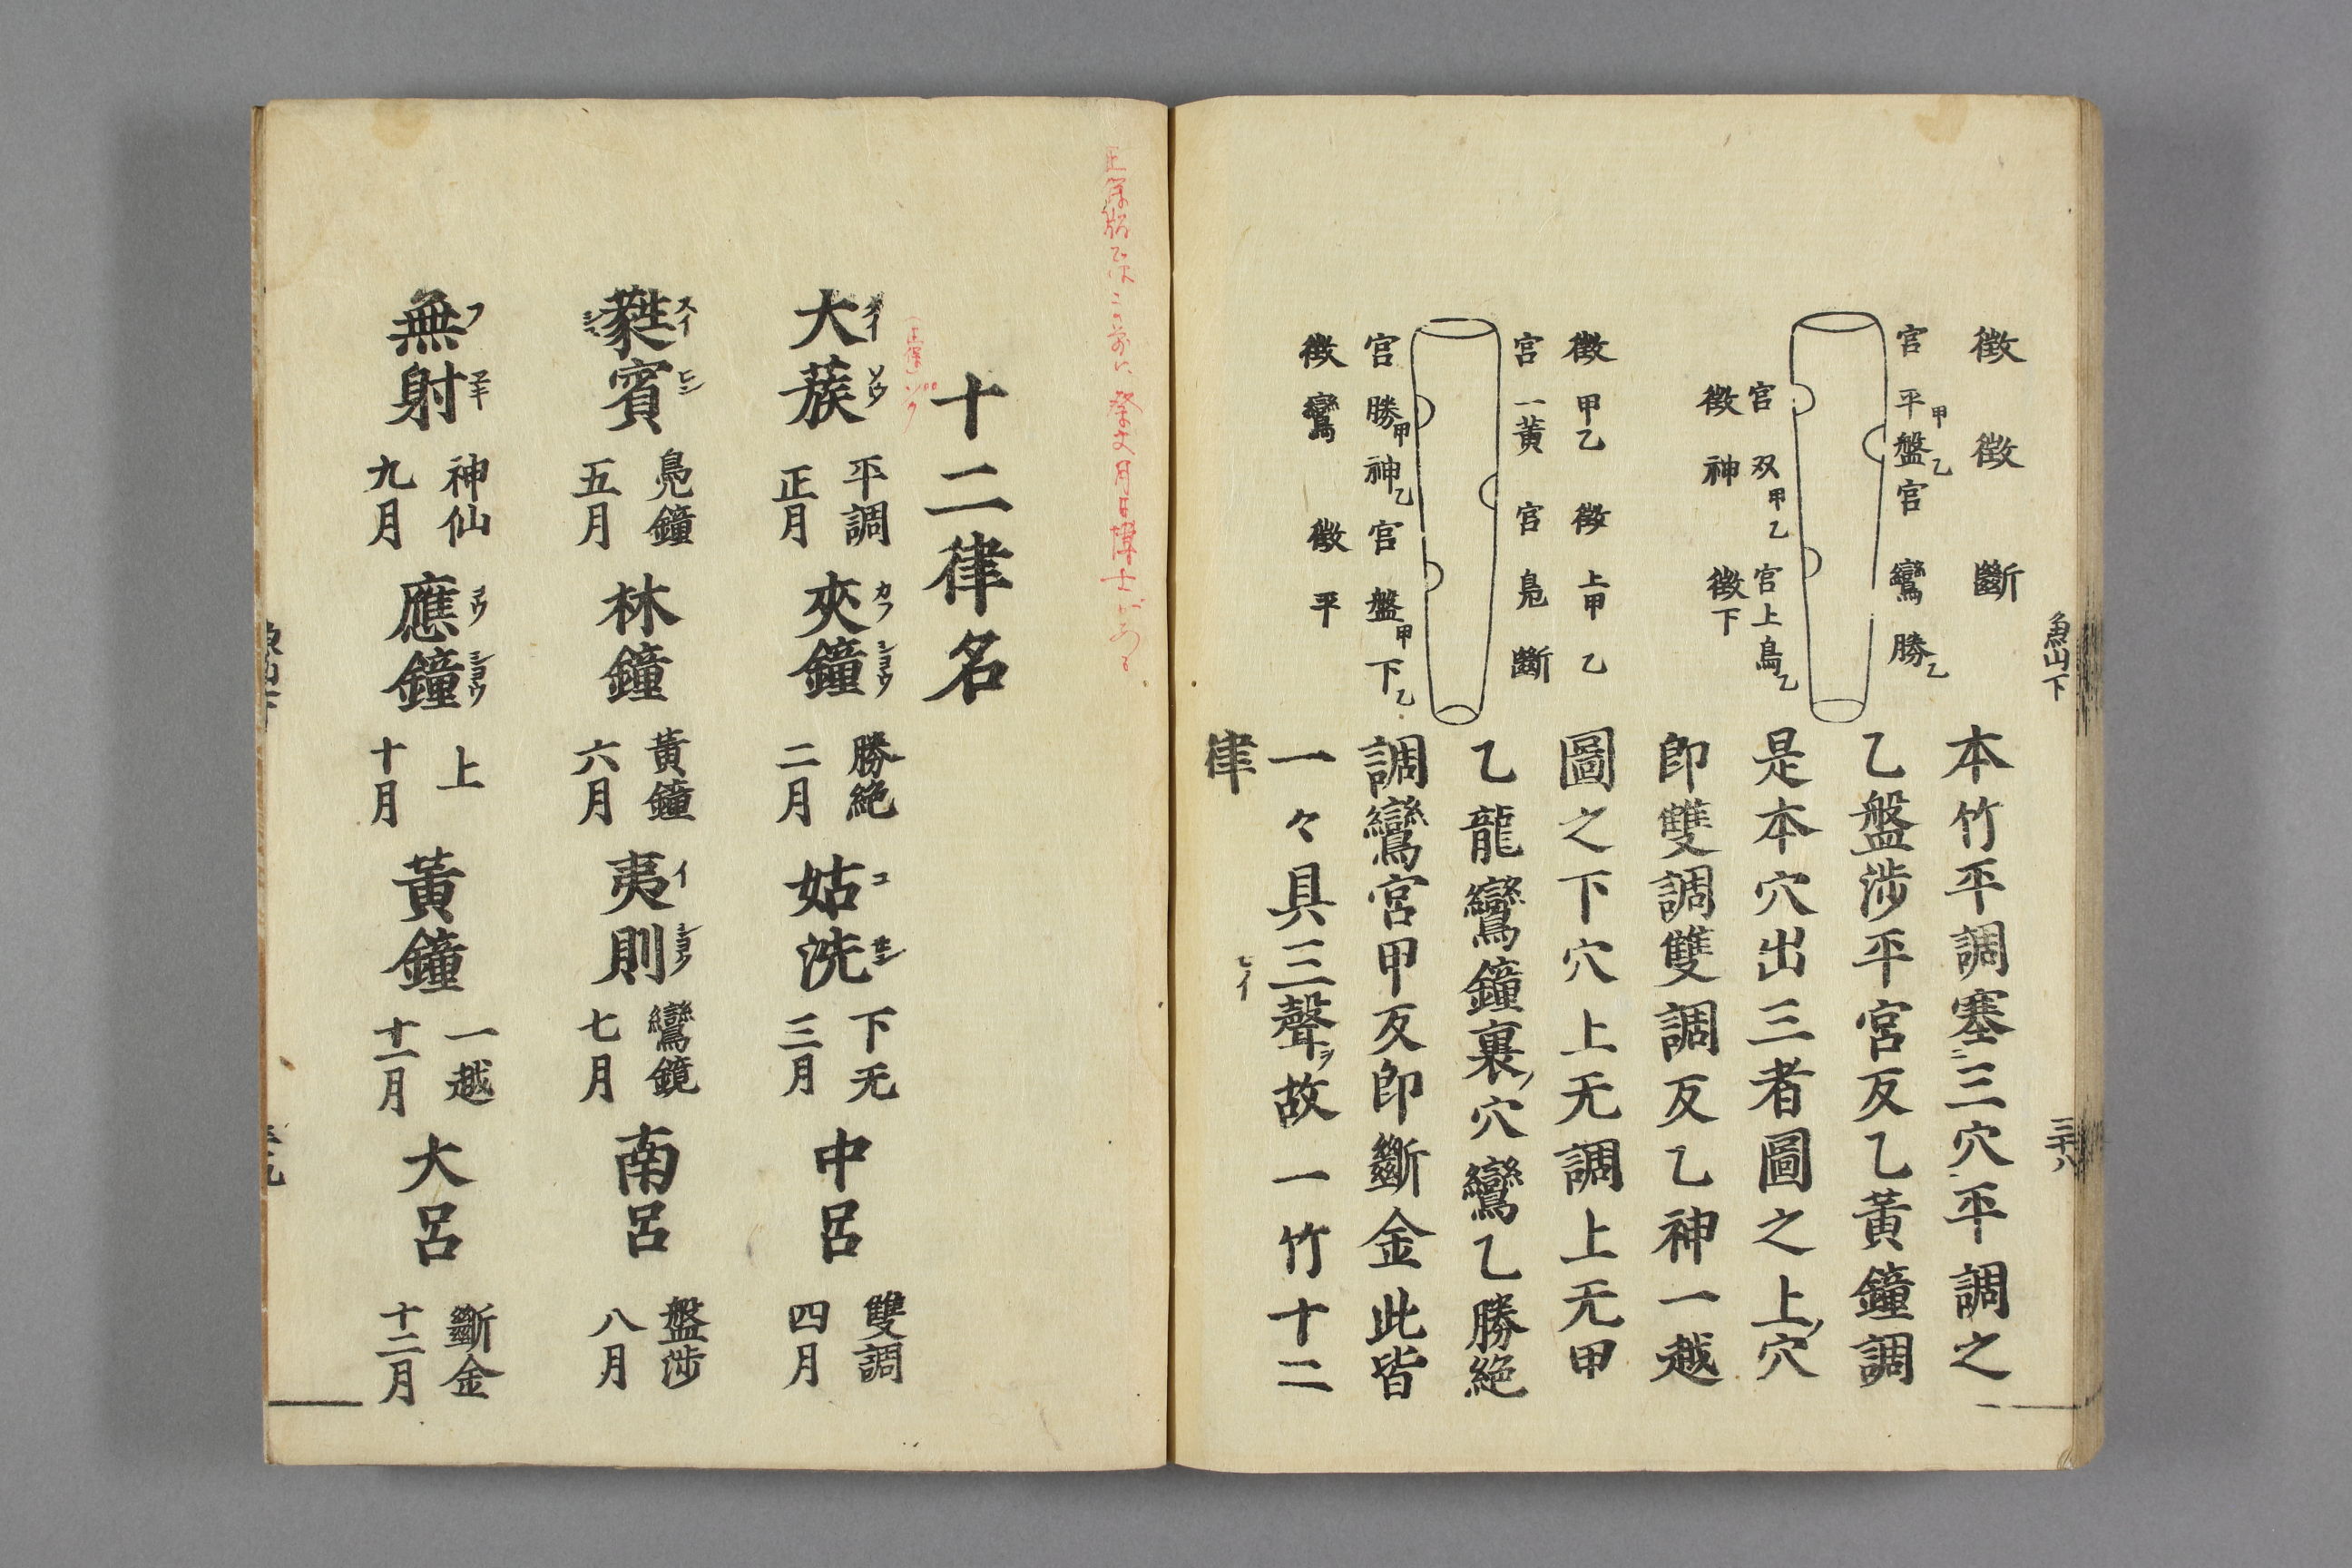 魚山下
三十八
徵 徵 斷
宮 平甲 盤乙 宮 鸞 勝乙
宮 双甲乙 宮上鳥乙
徵 神 徵下
徵 甲乙 徵 上甲 乙
宮 一黄 宮 鳧 斷
宮 勝甲 神乙 宮 盤甲 下乙
徵 鸞 徵 平
本竹平調塞ニ三穴平調之
乙盤渉平宮反乙黄鐘調
是本穴出三者圖之上ノ穴
即雙調雙調反乙神一越
圖之下穴上无調上无甲
乙龍鸞鐘裏ノ穴鸞乙勝絶
調鸞宮甲反即斷金此皆
一々具三聲ヲ故一竹十二
律
十二律名
大蔟 平調 正月 夾鐘 勝絶 二月 姑洗 下无 三月 中呂 雙調 四月
タイ ソウ カフ シヨウ コ セン
蕤賓 鳧鐘 五月 林鐘 黄鐘 六月 夷則 鸞鏡 七月 南呂 盤渉 八月
スイ ヒン イ シヨク
無射 神仙 九月 應鐘 上 十月 黄鐘 一越 十一月 大呂 斷金 十二月
フ エキ ヲウ シヨウ